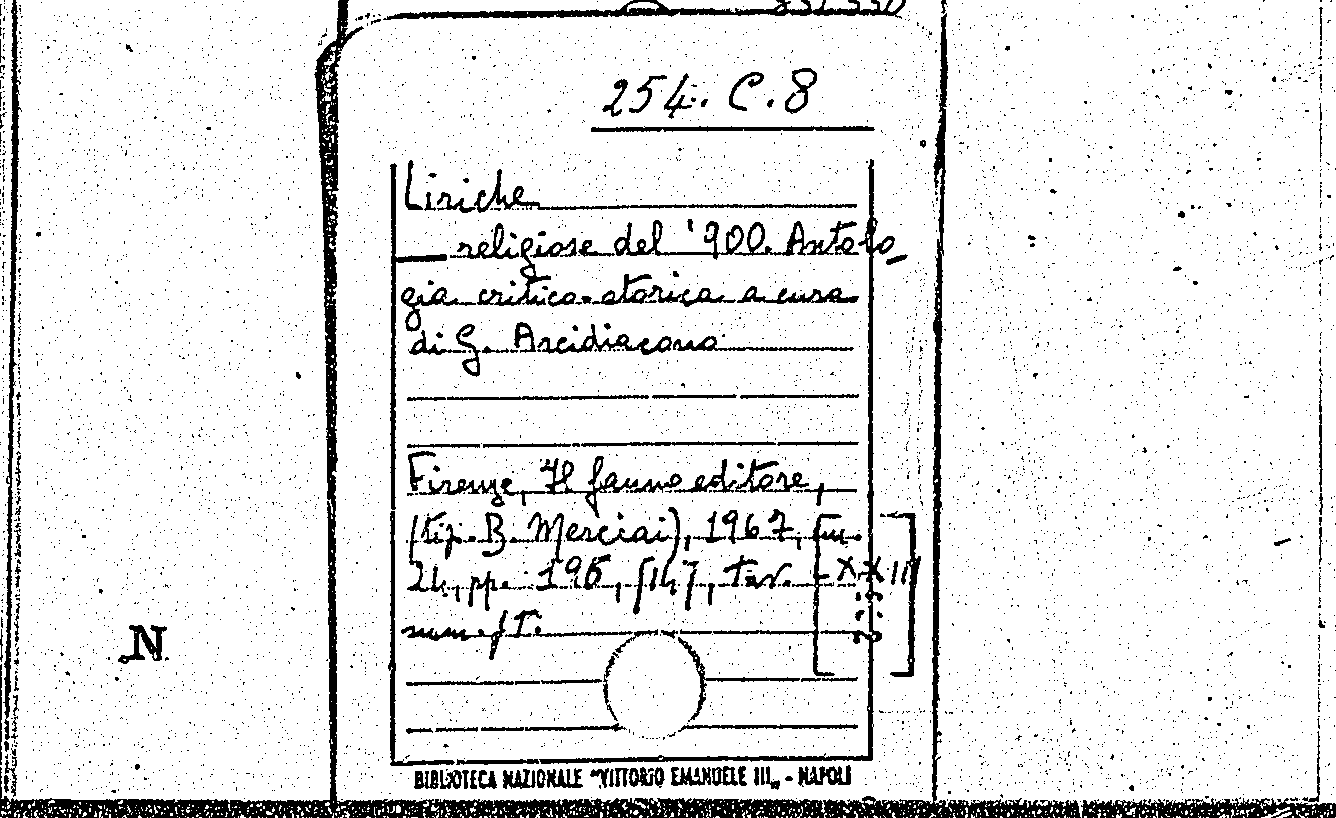 254. C. 8
Liriche
— religiose del '900. Antolo
gia critico-storica a cura
di G. Arcidiacono
Firenze, Il fauno editore,
(tip. B. Merciai), 1967, in.
24, pp. 195, tav.
num. f. T.
N
BIBLIOTECA NAZIONALE "VITTORIO EMANUELE III„ - NAPOLI